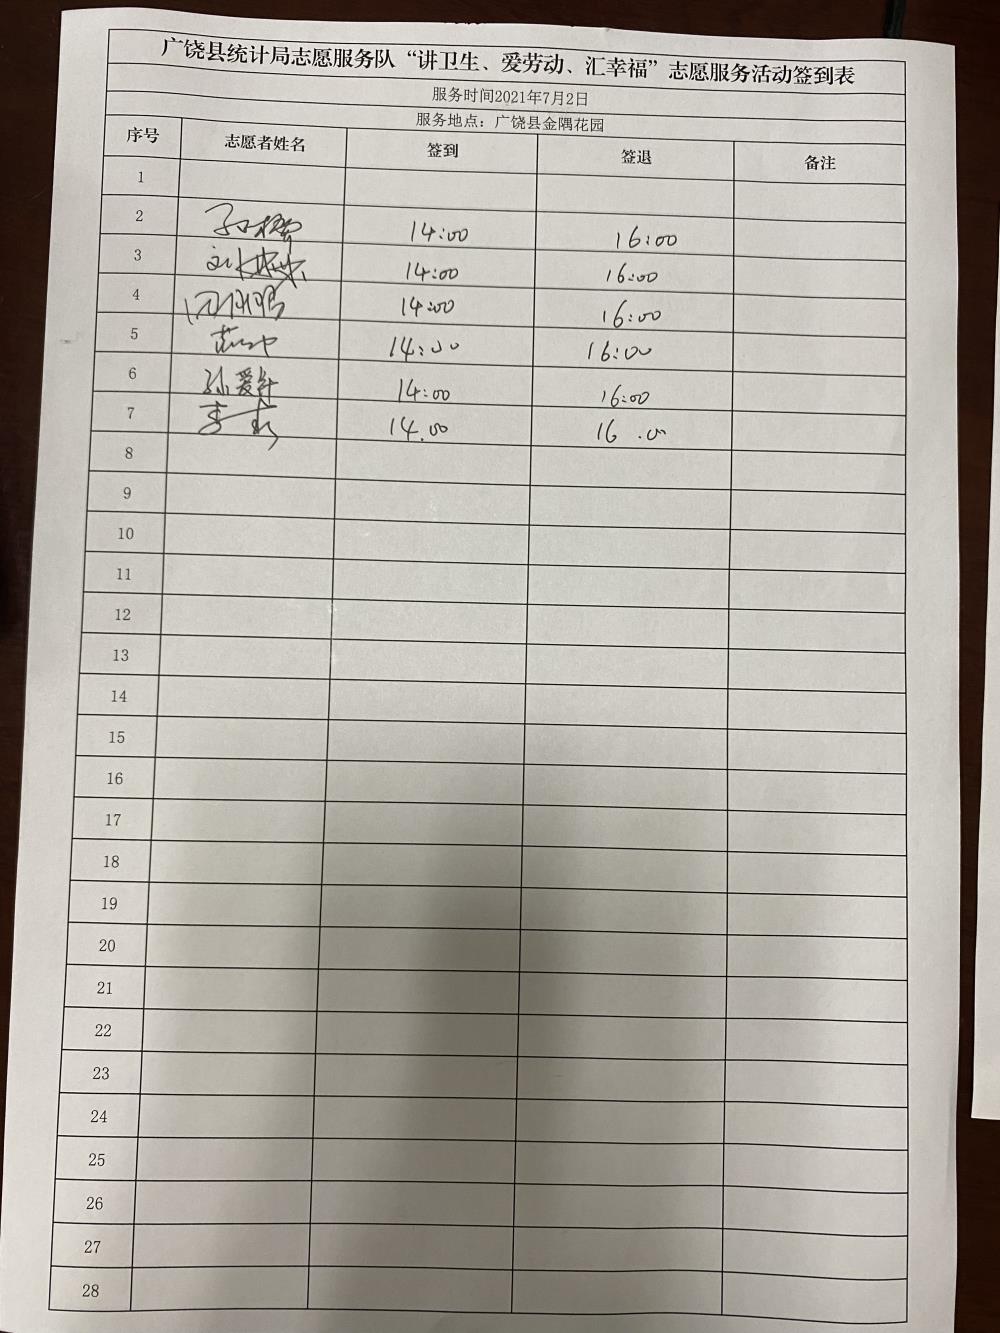 广饶县统计局志愿服务队“讲卫生、爱劳动、汇幸福”志愿服务活动签到表
服务时间2021年7月2日
服务地点：广饶县金隅花园
序号 志愿者姓名 签到 签退 备注
1
2 14:00 16:00
3 14:00 16:00
4 14:00 16:00
5 14:00 16:00
6 孙爱军 14:00 16:00
7 李 14.00 16.00
8
9
10
11
12
13
14
15
16
17
18
19
20
21
22
23
24
25
26
27
28